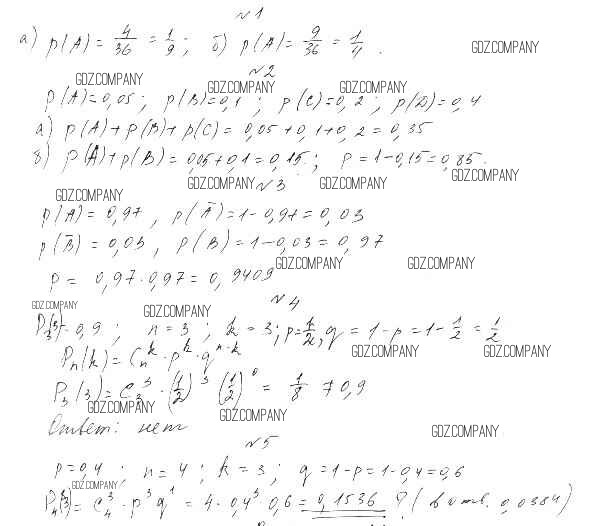 №1
а) p(A) = 4/36 = 1/9; б) p(A) = 9/36 = 1/4.
GDZ.COMPANY
№2
GDZ.COMPANY GDZ.COMPANY GDZ.COMPANY
p(A)=0,05; p(B)=0,1; p(C)=0,2; p(D)=0,4
а) p(A)+p(B)+p(C)=0,05+0,1+0,2=0,35
б) p(A)+p(B)=0,05+0,1=0,15; p=1-0,15=0,85.
GDZ.COMPANY
GDZ.COMPANY №3 GDZ.COMPANY
GDZ.COMPANY
p(A)=0,97, p(Ā)=1-0,97=0,03
p(B̄)=0,03, p(B)=1-0,03=0,97
GDZ.COMPANY GDZ.COMPANY
p= 0,97·0,97=0,9409
№4
GDZ.COMPANY GDZ.COMPANY
P₃(3)=0,9; n=3; k=3; p=1/2, q=1-p=1-1/2=1/2
GDZ.COMPANY GDZ.COMPANY
Pₙ(k)=Cₙᵏ·pᵏ·qⁿ⁻ᵏ
P₃(3)=C₃³·(1/2)³(1/2)⁰=1/8≠0,9
GDZ.COMPANY GDZ.COMPANY
Ответ: нет
GDZ.COMPANY
№5
p=0,4; n=4; k=3; q=1-p=1-0,4=0,6
GDZ.COMPANY
P₄(3)=C₄³·p³q¹=4·0,4³·0,6=0,1536 ? (в отв. 0,0384)